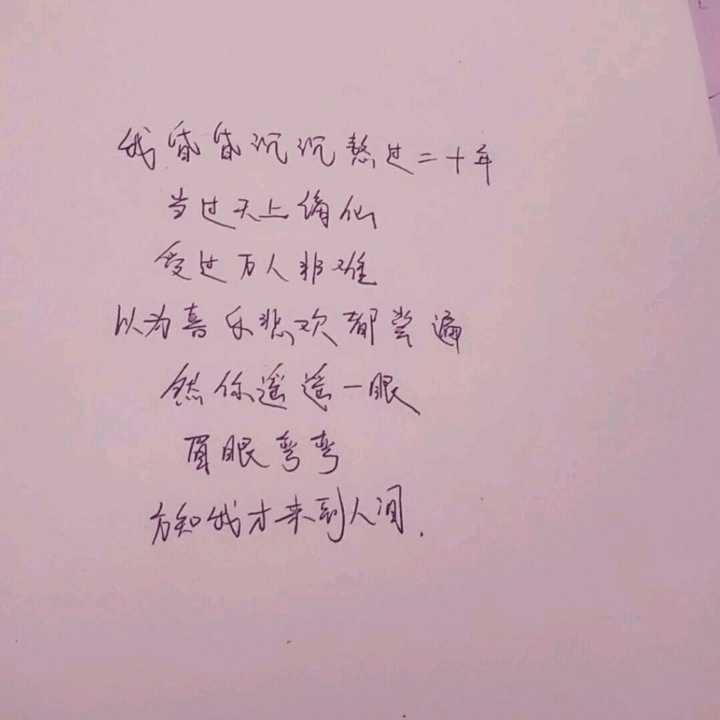 我昏昏沉沉熬过二十年
当过天上谪仙
受过万人非难
以为喜乐悲欢都尝遍
然你遥遥一眼
眉眼弯弯
方知我才来到人间.